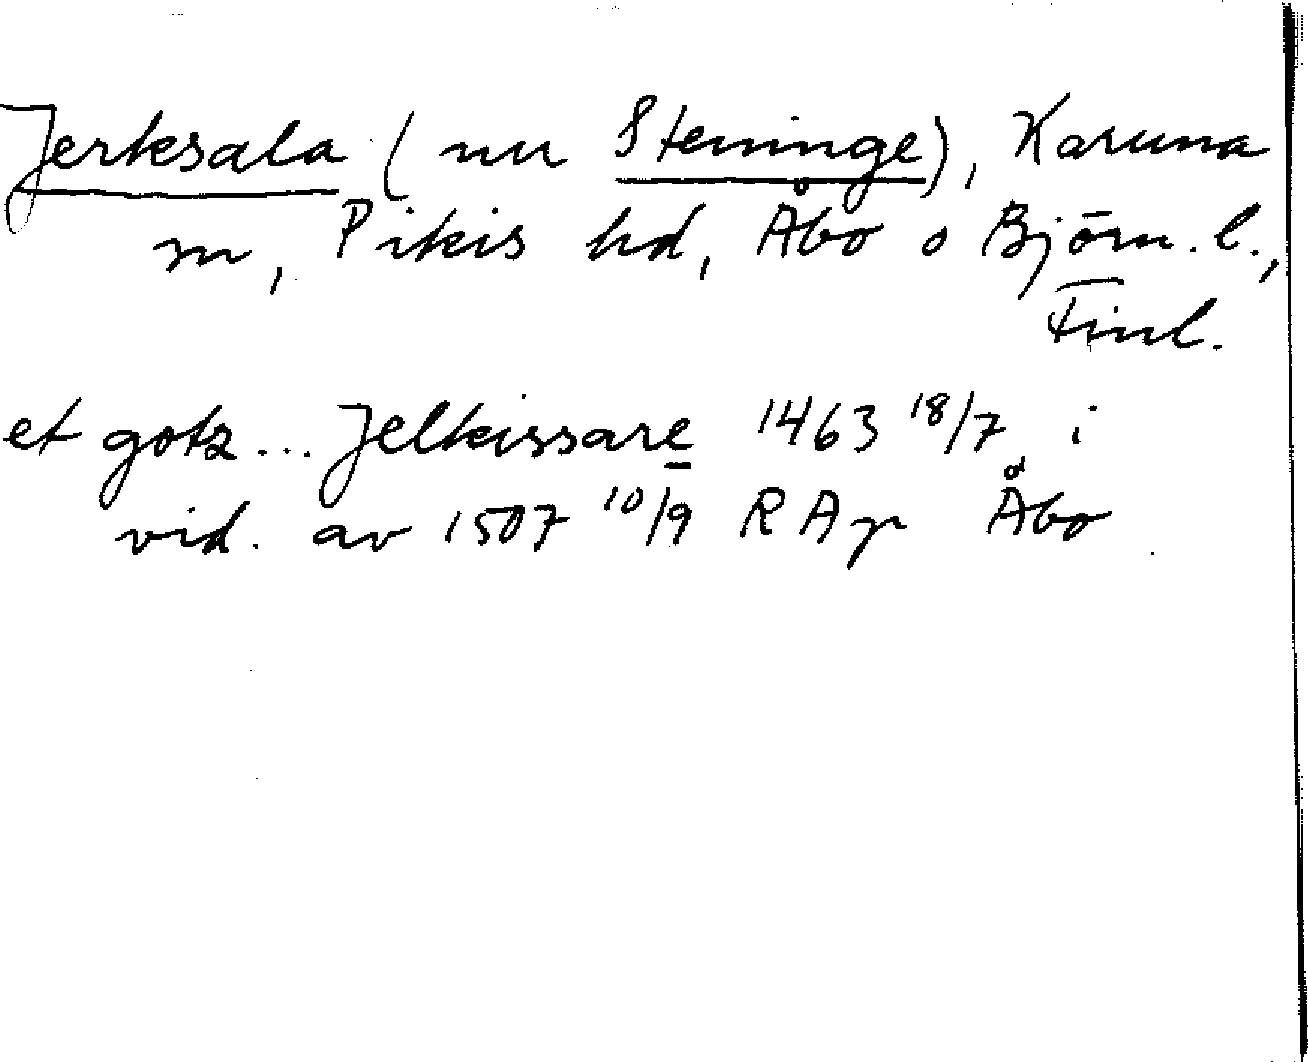 Jerksala (nu Steninge), Karuna
sn, Pikis hd, Åbo o Björn. l.,
Finl.
et gotz... Jelkissare 1463 18/7 i
vid. av 1507 10/9 RAp Åbo